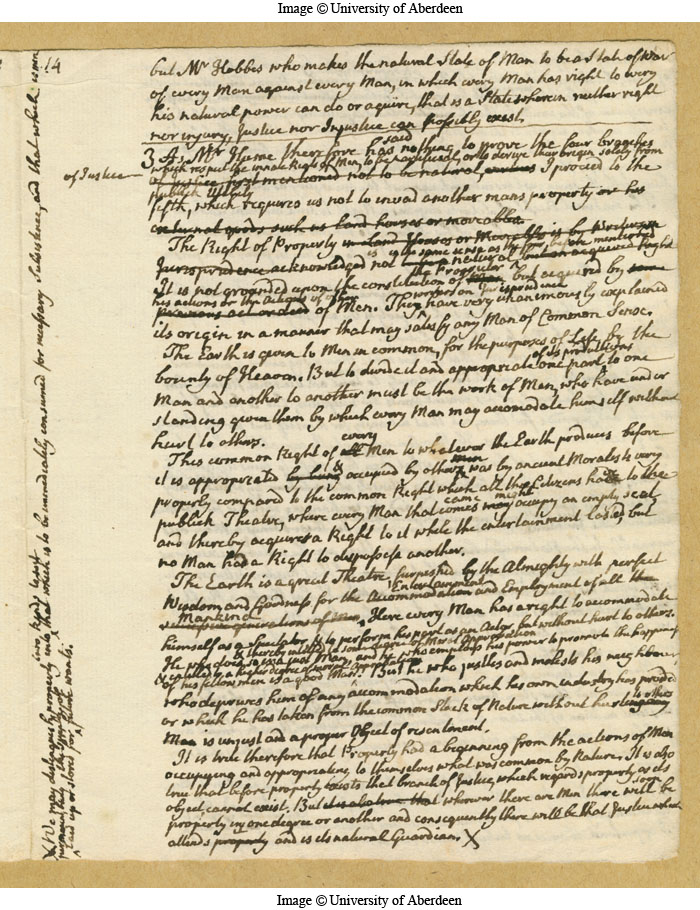 Image © University of Aberdeen
14
but Mr Hobbes who makes the natural State of Man to be a State of War
of every Man against every Man, in which every Man has right to every
his natural power can do or aquire, that is a State wherein neither right
nor injury, Justice nor Injustice can possibly exist.
said
3 As Mr Hume therefore has nothing to prove the four branches
which respect the innate Rights of Men, to be or to derive their origin solely from
of Justice
of Justice first mentioned not to be natural, I proceed to the
publick Utility
fifth, which requires us not to invade another mans property or his
external goods such as land houses or moveables.
The Right of Property in Land Houses or Moveables is by Writers on
is in the same sense as the four before mentioned
Jurisprudence acknowledged not natural but an acquired Right
It is not grounded upon the constitution of Man but acquired by some
his actions or the actions of other
writers on Jurisprudence
previous act or deed of Men. They have very unanimously explained
its origin in a manner that may satisfy any Man of Common Sense.
The Earth is given to Men in common, for the purposes of Life, by the
of its productions
bounty of Heaven. But to divide it and appropriate one part to one
Man and another to another must be the work of Men, who have under
standing given them by which every Man may accomodate himself without
hurt to others.
every
This common Right of all Men to whatever the Earth produces before
& men
it is appropriated by being occupied by others was by ancient Moralists very
properly compared to the common Right which all the Citizens had to the
came might
publick Theatre, where every Man that comes may occupy an empty seat,
and thereby acquires a Right to it while the entertainment lasted, but
no Man had a Right to dispossess another.
The Earth is a great Theatre, furnished by the Almighty with perfect
Entertainment
Wisdom and Goodness for the Accomodation and Employment of all the
Mankind
successive generations of men. Here every Man has a right to accommodate
himself as a Spectator, & to perform his part as an Actor, but without hurt to others.
& thereby intitled to some degree of Moral Approbation
He who does so is a just Man, and he who employs his power to promote the happiness
& intitled to a higher degree of moral approbation
of his fellow men is a good Man. But he who justles and molests his neighbour
who deprives him of any accommodation which his own industry has provided
or which he has taken from the common Stock of Nature without hurting to other
Man is unjust and a proper Object of resentment.
It is true therefore that Property had a beginning from the actions of Men
occupying and appropriating to themselves what was common by Nature. It is also
true that before property exists that branch of Justice, which regards property as its
object, cannot exist. But it is also true that wherever there are Men there will be soon
property in one degree or another and consequently there will be that Justice which
attends property and is its natural Guardian. X
X We may distinguish property into that which is to be immediately consumed for necessary Subsistence, and that which is more
two kinds, first
permanent, that is
laid up or stored for future wants.
Image © University of Aberdeen